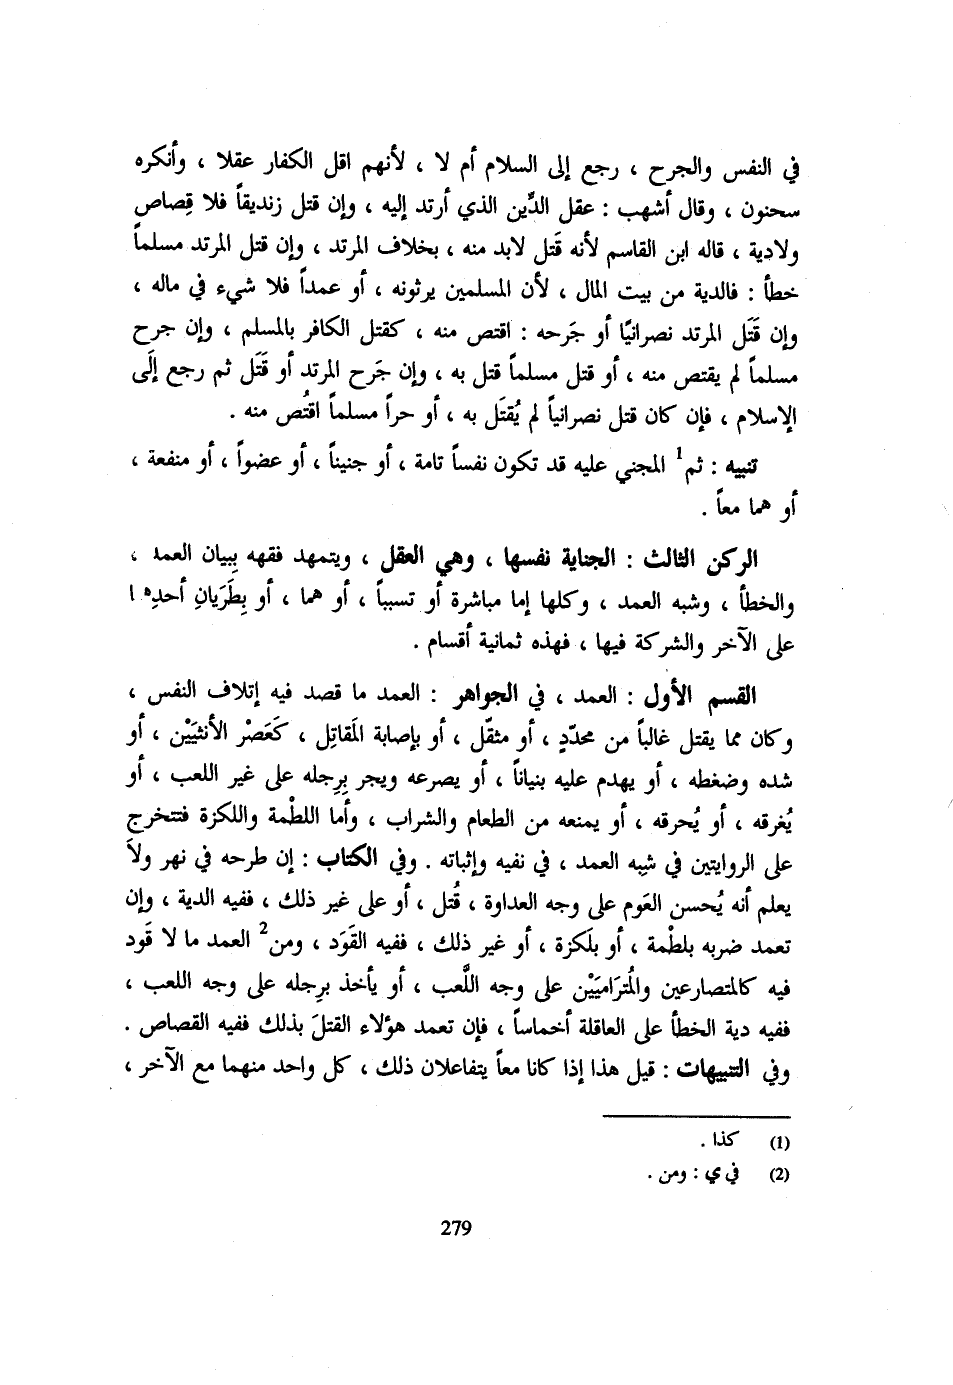 في النفس والجرح ، رجع إلى السلام أم لا ، لأنهم اقل الكفار عقلا ، وأنكره
سحنون ، وقال أشهب : عقل الدِّين الذي أرتد إليه ، وإن قتل زنديقاً فلا قِصاص
ولادية ، قاله ابن القاسم لأنه قَتل لابد منه ، بخلاف المرتد ، وإن قتل المرتد مسلماً
خطأ : فالدية من بيت المال ، لأن المسلمين يرثونه ، أو عمداً فلا شيء في ماله ،
وإن قَتَل المرتد نصرانيًا أو جَرحه : اقتص منه ، كقتل الكافر بالمسلم ، وإن جرح
مسلماً لم يقتص منه ، أو قتل مسلماً قتل به ، وإن جَرح المرتد أو قَتَل ثم رجع إلَى
الإسلام ، فإن كان قتل نصرانياً لم يُقتَل به ، أو حراً مسلماً اقتُص منه .
تنبيه : ثم1 المجني عليه قد تكون نفساً تامة ، أو جنيناً ، أو عضواً ، أو منفعة ،
أو هما معاً .
الركن الثالث : الجناية نفسها ، وهي العقل ، ويتمهد فقهه بِبيان العمد ،
والخطأ ، وشبه العمد ، وكلها إما مباشرة أو تسبباً ، أو هما ، أو بِطَرَيانِ أحدِهما
على الآخر والشركة فيها ، فهذه ثمانية أقسام .
القسم الأول : العمد ، في الجواهر : العمد ما قصد فيه إتلاف النفس ،
وكان مما يقتل غالباً من محدّدٍ ، أو مثقّل ، أو بإصابة المَقاتِل ، كَعَصْر الأنثيَيْن ، أو
شده وضغطه ، أو يهدم عليه بنياناً ، أو يصرعه ويجر بِرجله على غير اللعب ، أو
يُغرقه ، أو يُحرقه ، أو يمنعه من الطعام والشراب ، وأما اللطْمة واللكزة فتتخرج
على الروايتين في شبِه العمد ، في نفيه وإثباته . وفي الكتاب : إن طرحه في نهر ولاَ
يعلم أنه يُحسن العَوم على وجه العداوة ، قُتل ، أو على غير ذلك ، ففيه الدية ، وإن
تعمد ضربه بلطْمة ، أو بلَكزة ، أو غير ذلك ، ففيه القَوَد ، ومن2 العمد ما لا قَود
فيه كالمتصارعين والمُترَاميَيْن على وجه اللَّعب ، أو يأخذ برِجله على وجه اللعب ،
ففيه دية الخطأ على العاقلة أخماساً ، فإن تعمد هؤلاء القتلَ بذلك ففيه القصاص .
وفي التنبيهات : قيل هذا إذا كانا معاً يتفاعلان ذلك ، كل واحد منهما مع الآخر ،
(1) كذا .
(2) في ي : ومن .
279